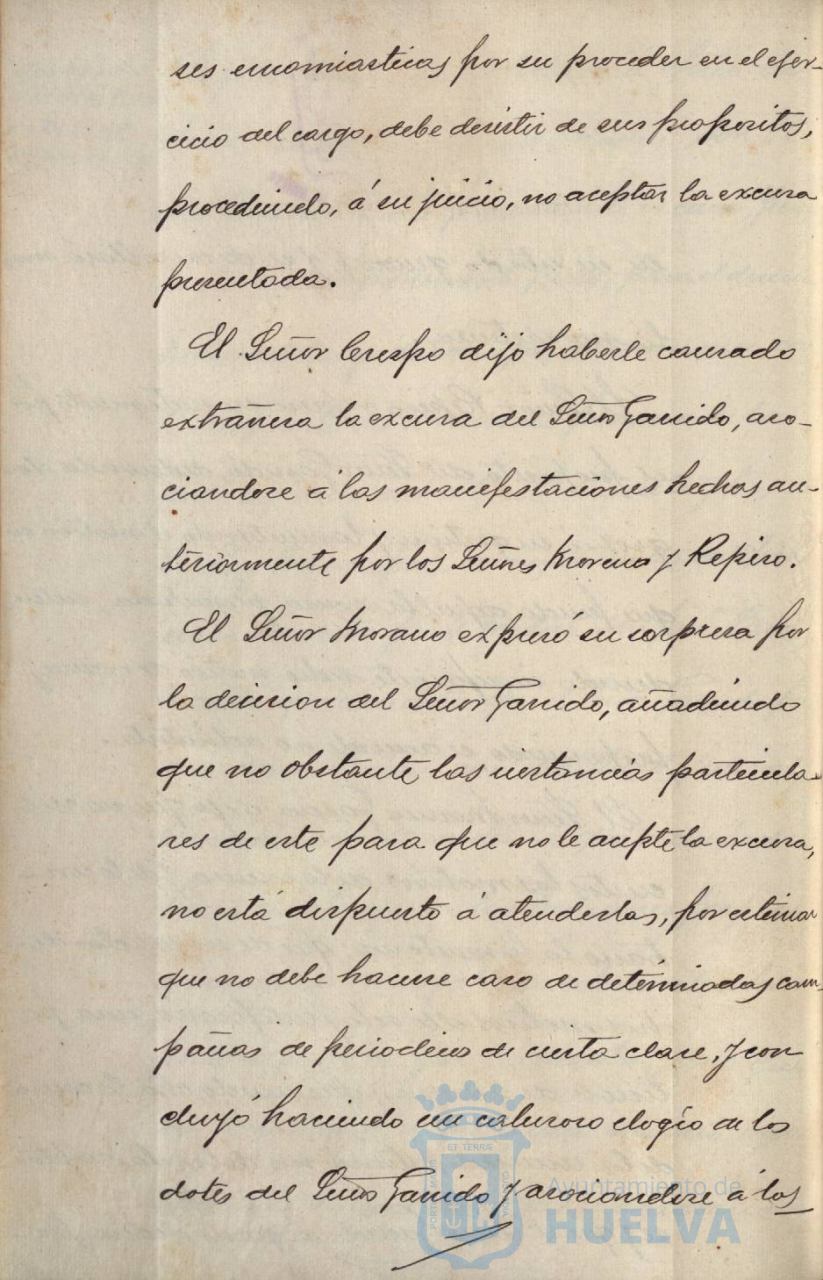 ses encomiasticas por su proceder en el ejer-
cicio del cargo, debe desistir de sus propositos,
procediendo, á su juicio, no aceptar la excusa
presentada.
El Señor Crespo dijo haberle causado
extrañesa la excusa del Señor Garrido, aso-
ciandose á las manifestaciones hechas an-
teriormente por los Señores Moreno y Repiso.
El Señor Morano expresó su sorpresa por
la decision del Señor Garrido, añadiendo
que no obstante las instancias particula-
res de este para que no le acepte la excusa,
no está dispuesto á atenderlas, por estimar
que no debe hacerse caso de determinadas cam-
pañas de periodicos de cierta clase, y con
cluyó haciendo un caluroso elogio de las
dotes del Señor Garrido y asociandose á los
ET TERRÆ
Ayuntamiento de
HUELVA